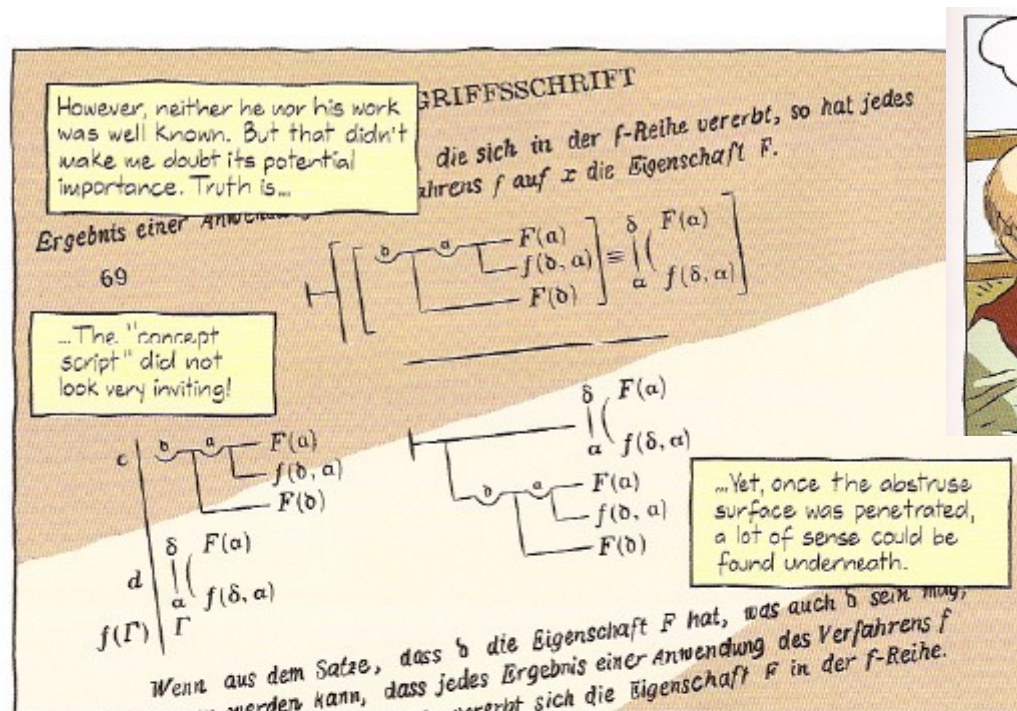 However, neither he nor his work
was well known. But that didn't
make me doubt its potential
importance. Truth is...
GRIFFSSCHRIFT
die sich in der f-Reihe vererbt, so hat jedes
Ergebnis einer Anwendung
ahrens f auf x die Eigenschaft F.
69
𝔡 𝔞 F(𝔞)
f(𝔡, 𝔞)
F(𝔡)
≡
δ F(α)
α f(δ, α)
...The "concept
script" did not
look very inviting!
c 𝔡 𝔞 F(𝔞)
f(𝔡, 𝔞)
F(𝔡)
d δ F(α)
α f(δ, α)
f(Γ) Γ
δ F(α)
α f(δ, α)
𝔡 𝔞 F(𝔞)
f(𝔡, 𝔞)
F(𝔡)
...Yet, once the abstruse
surface was penetrated,
a lot of sense could be
found underneath.
Wenn aus dem Satze, dass 𝔡 die Eigenschaft F hat, was auch 𝔡 sein mag,
werden kann, dass jedes Ergebnis einer Anwendung des Verfahrens f
vererbt sich die Eigenschaft F in der f-Reihe.